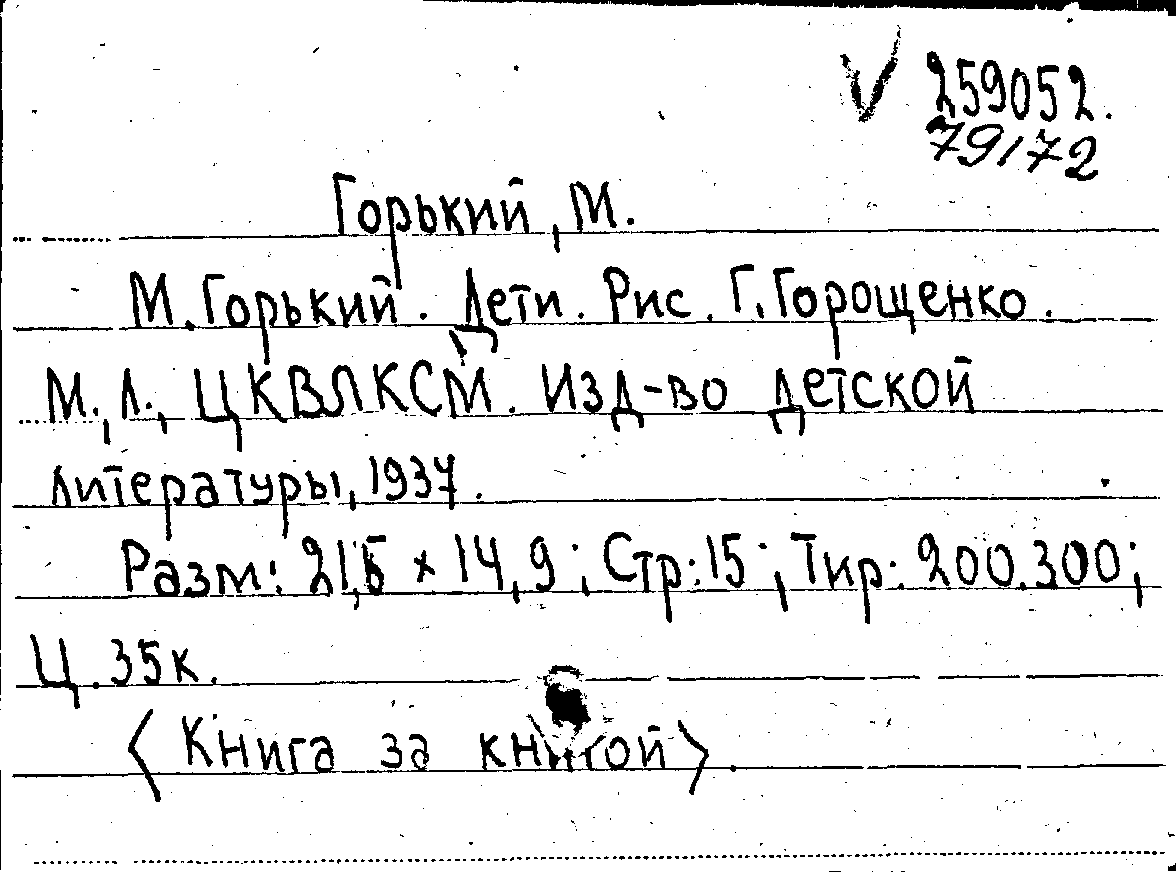 V 259052.
79/72
Горький, М.
М. Горький. Дети. Рис. Г. Горощенко.
М., Л., ЦКВЛКСМ. Изд-во детской
литературы, 1937.
Разм: 21,5 x 14,9; Стр: 15; Тир: 200.300;
Ц. 35к.
<Книга за книгой>.